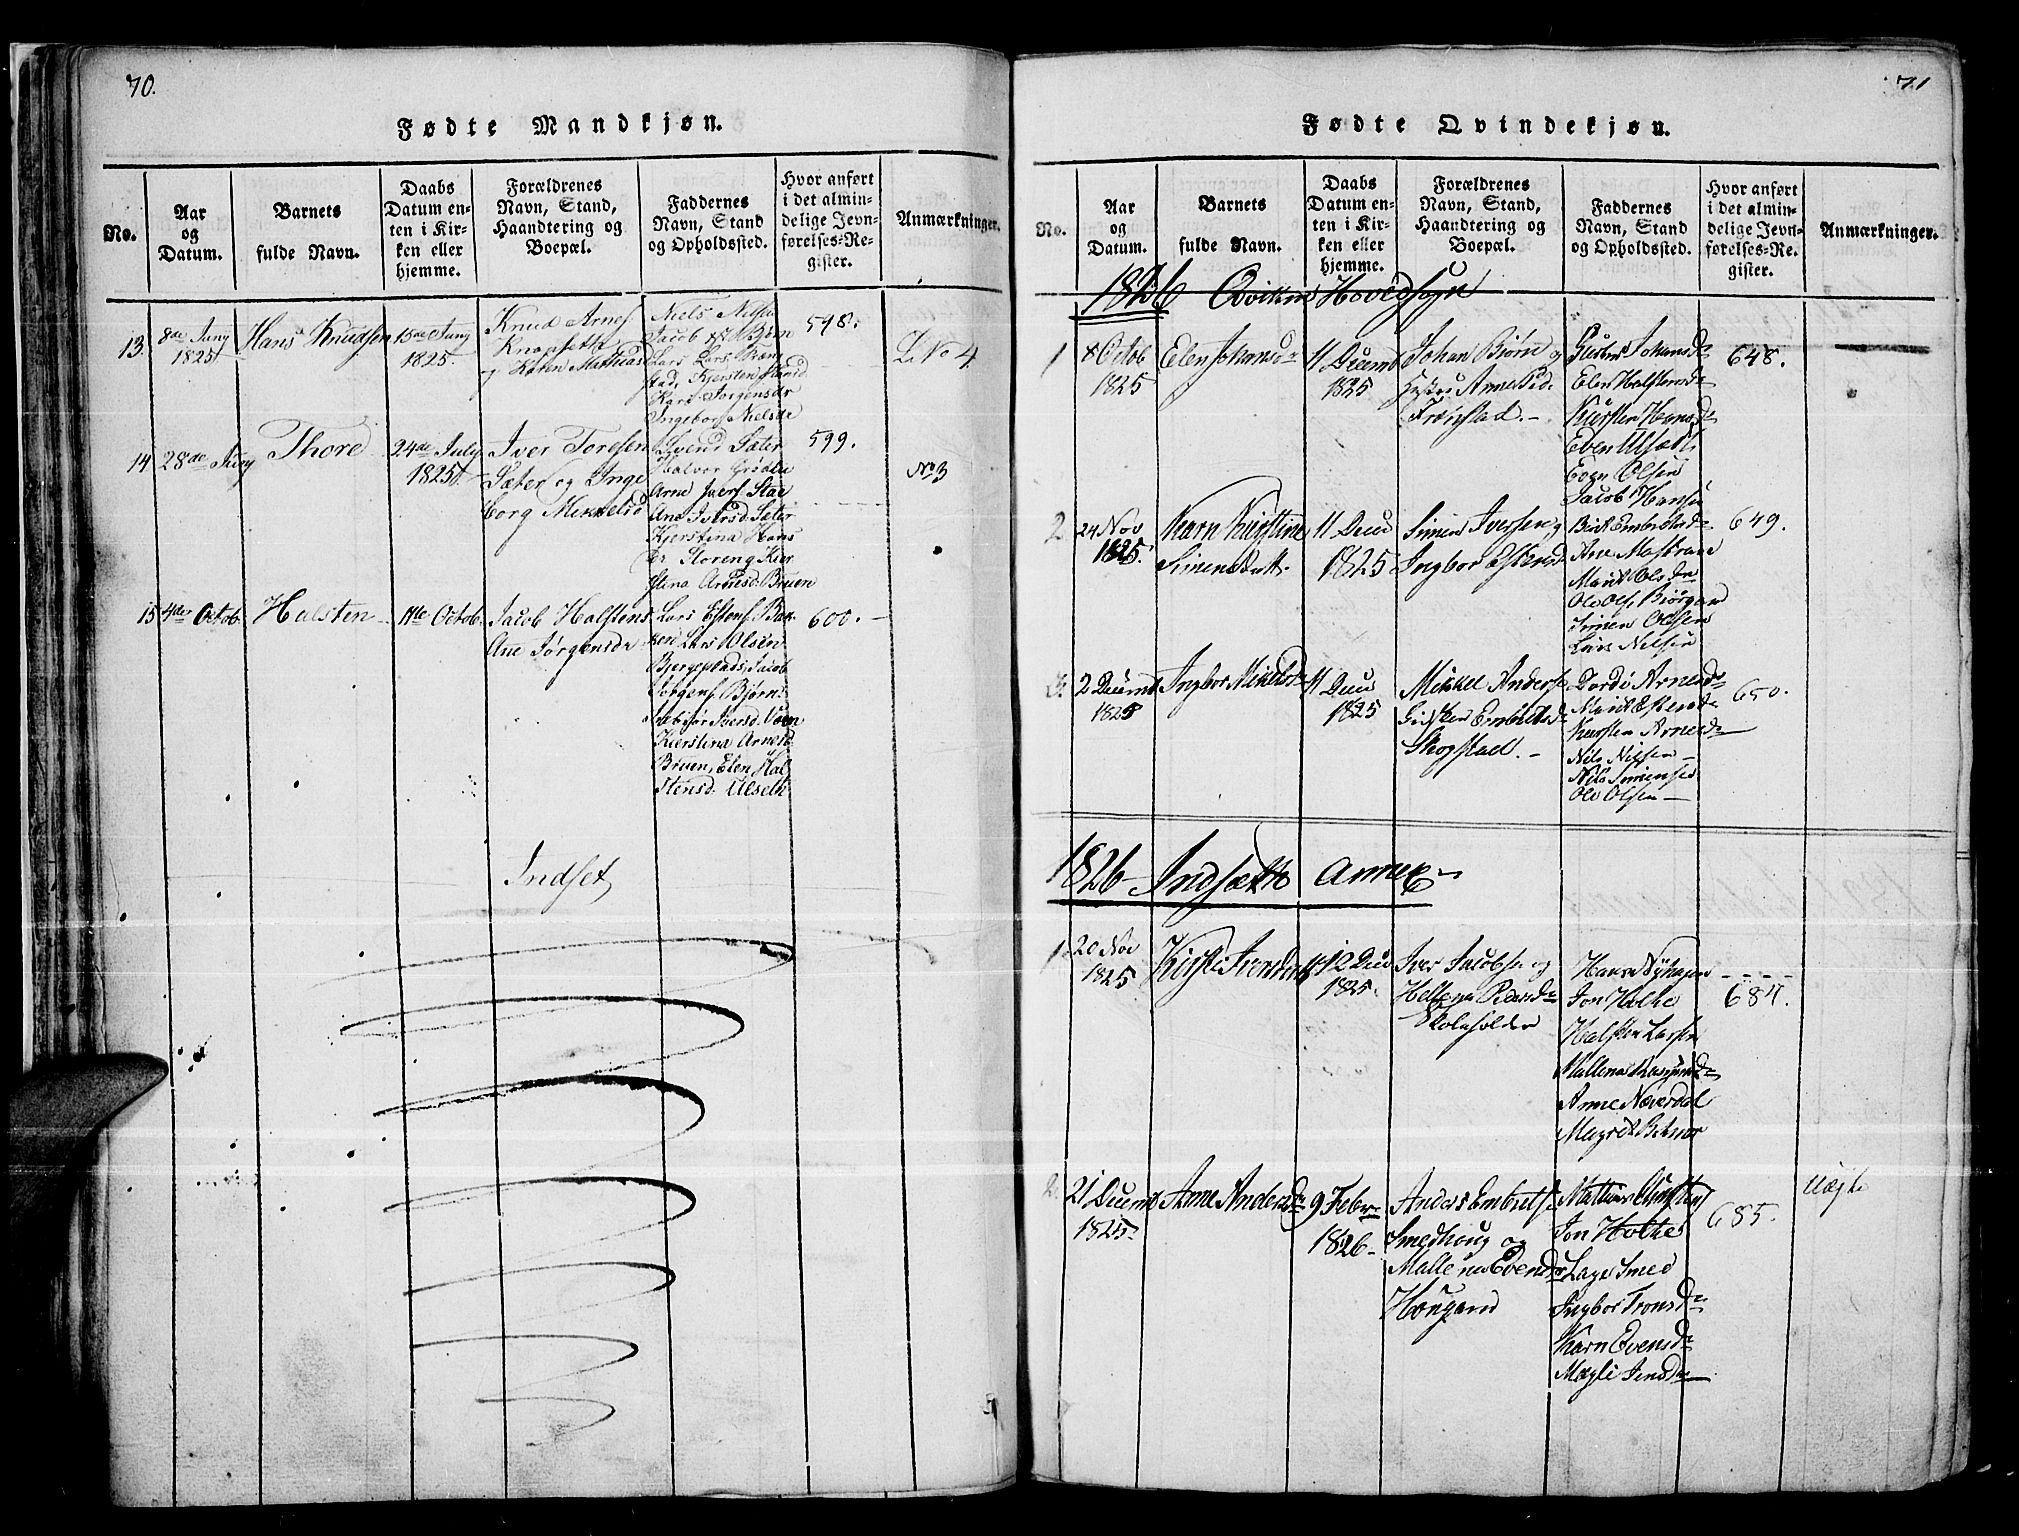 70.
Fødte Mandkjøn.
No.
Aar
og
Datum.
Barnets
fulde Navn.
Daabs
Datum en-
ten i Kir-
ken eller
hjemme.
Forældrenes
Navn, Stand,
Haandtering og
Boepæl.
Faddernes
Navn, Stand
og Opholdssted.
Hvor anført
i det almin-
delige Jevn-
førelses-Re-
gister.
Anmærkninger.
13.
8de Juny
1825.
Hans Knudsen
15de Juny
1825.
Knud Arnes
Knapsette
og Karen Mathias
Niels Nilsen
Jacob Bjørn
Lars Lars Brang
stad, Kjersten
Kari Jorgensdr
Ingebor Nielsde
598.
L. No 4.
14
28de Juny
Thore
24de July
1825.
Iver Toresen
Sæter og Inge
borg Mikkelsd
Svend Sæter
Halvor Grødli
Arne Iverf Stae
Ane Iversd. Sæter
Kjerstina Hans
dr Storeng Kier
stina Arnesd. Bruen
599.
No 3
15
4de Octob.
Halsten
11te Octob.
Jacob Halstens
Ane Jørgensdr
Lars Estenf. Bak
ken Lars Olsen
Bjergsplads, Jacob
Jørgens. Bjørn
Iversd. Voen
Kierstina Arnesd
Bruen, Elen Hal
stensd. Ulseth
600.
Indset
71
Fødte Qvindekjøn.
No.
Aar
og
Datum.
Barnets
fulde Navn.
Daabs
Datum en-
ten i Kir-
ken eller
hjemme.
Forældrenes
Navn, Stand,
Haandtering og
Boepæl.
Faddernes
Navn, Stand
og Opholdssted.
Hvor anført
i det almin-
delige Jevn-
førelses-Re-
gister.
Anmærkninger.
1826 Qvikne Hovedsogn
1
8 Octob
1825
Elen Johansdr
11 Decemb
1825
Johan Biørn og
Hustru Arne Ped
Frønstad.
Johansdr
Elen Halstensdr
Kiersten Hansdr
Eben Ulsett
Olsen
Jacob Hansen
648.
2
24 Nov
1825.
Karn Kirstine
Simensdatt.
11 Decm
1825
Simen Iversen og
Ingbor Estensd
Berit Embretsdr
Ane
Marit Ols
Olv Ols. Biørgan
Simen Olsen
Lars Nilsen
649.
3.
2 Decmb
1825
Ingbor Mikkelsdr
11 Decm
1825
Mikkel Anders
Gidsken Embretsdr
Skogstad.
Dordi Arnesdr
Marit Estensdr
Kiersten Arnesdr
Nils Nilsen
Nils Simensen
Olv Olsen
650.
1826 Indsætts Annex
1.
20 Nov
1825
Kirsti Iversdatt
12 Decm
1825.
Iver Jacobsen og
Hellena Pedersdr
Skoleholder
Hans Nyhagen
Jon Holte
Halsten Larsen
Mallena
Anne Næverdal
Magrit
684.
2.
21 Decemb
1825
Anne Andersdr
9 Febr
1826
Anders Embretsen
Smedhoug og
Mallena Evendr
Hougand
Mathias
Jon Holte
Lage Smed
Ingbor Tronsdr
Karn Evensdr
Magli Jensdr
685.
Uægte